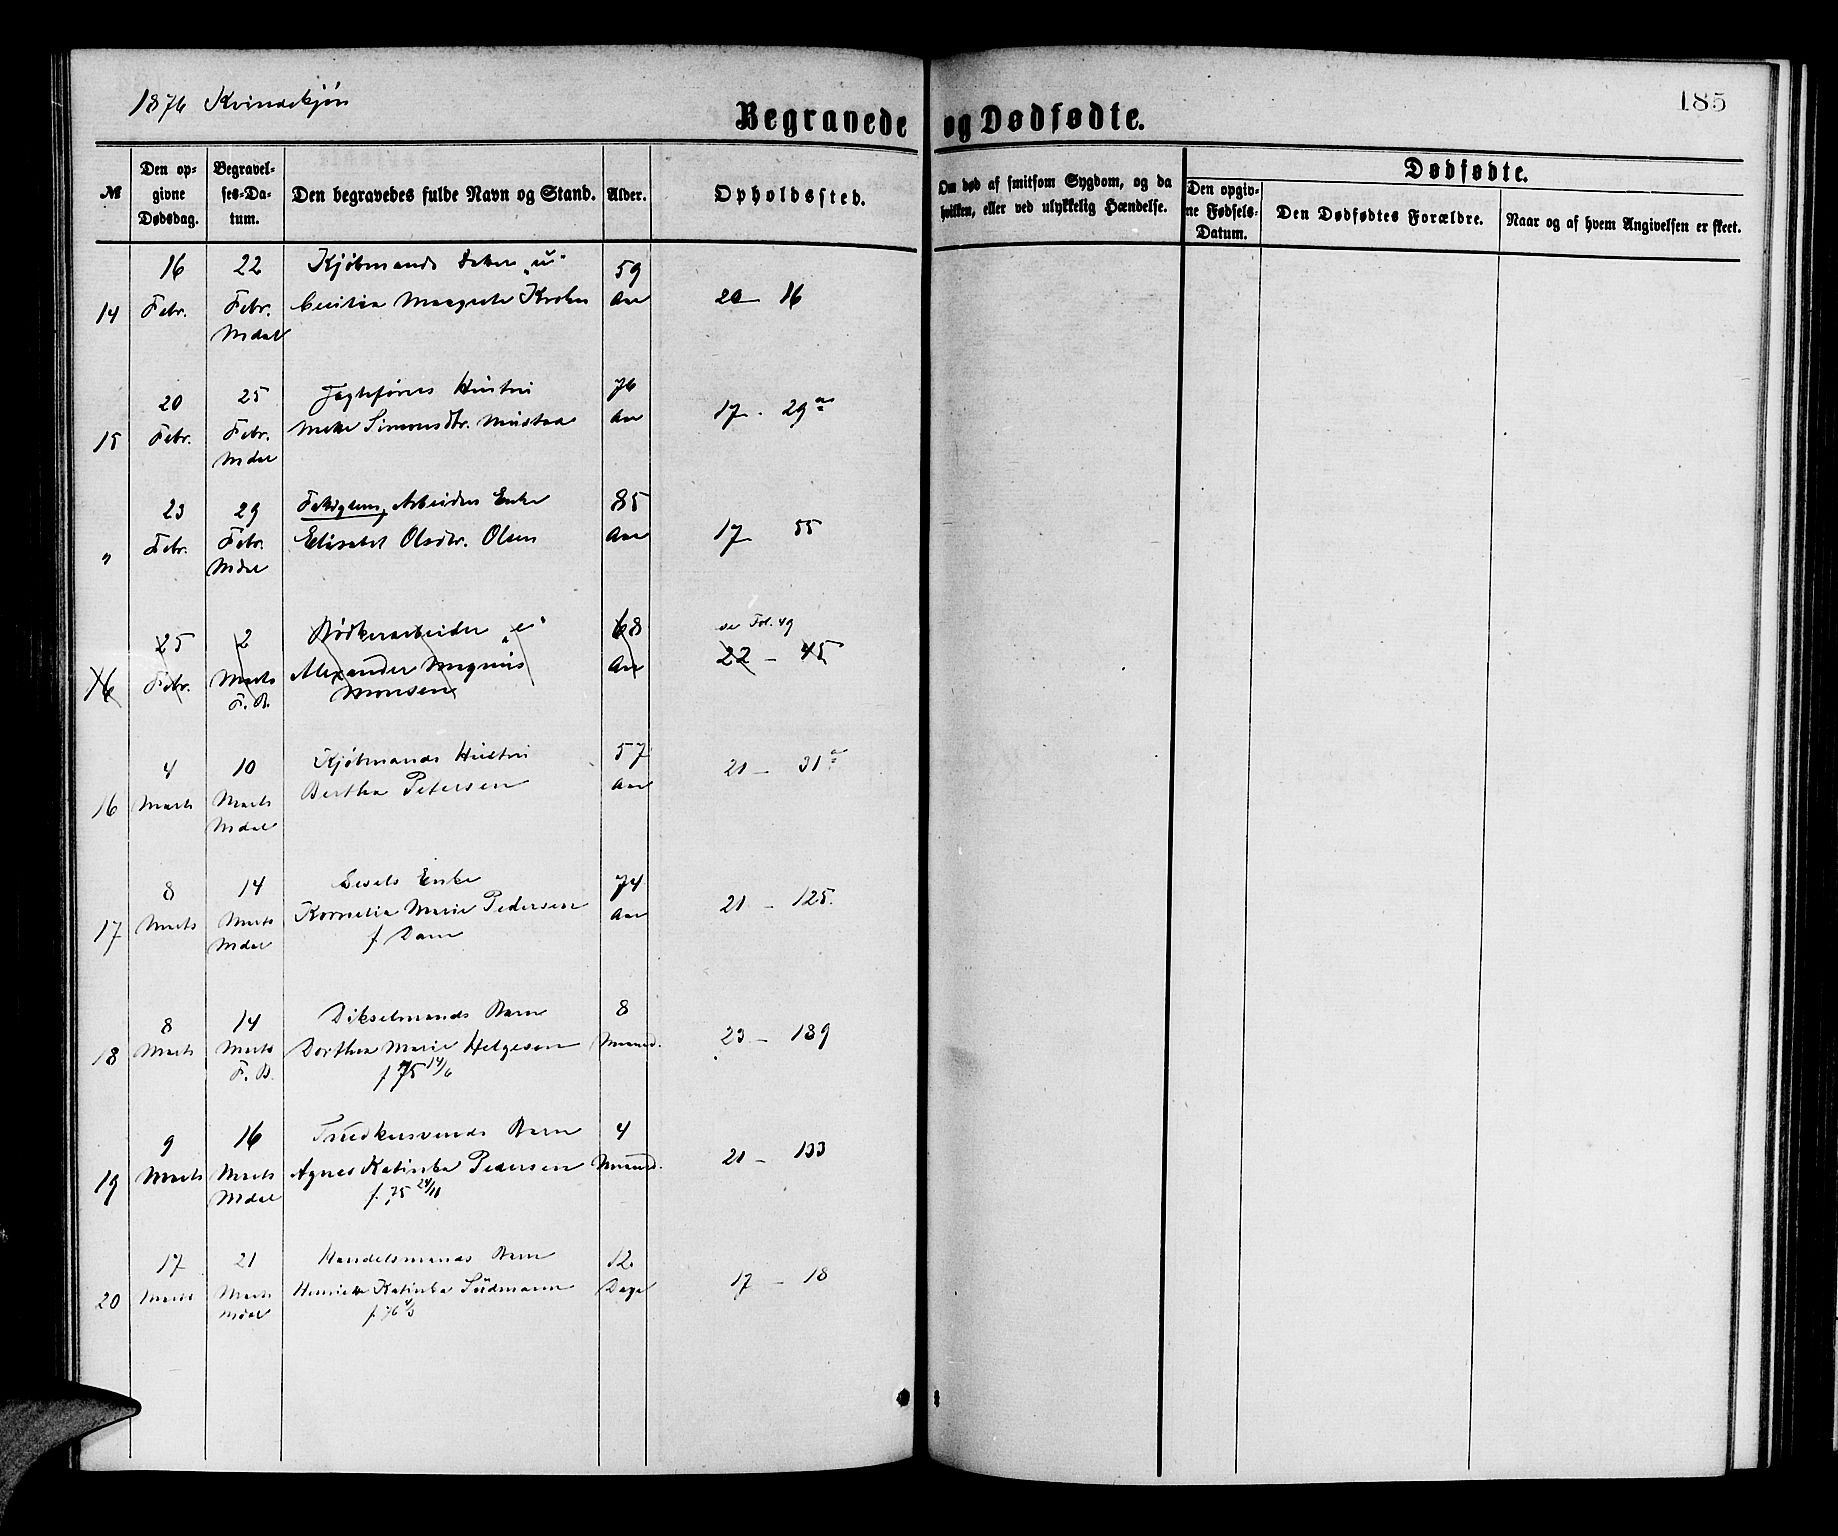 1876 Kvindekjøn
185
Begravede og Dødfødte.
№
Den opgivne Dødsdag.
Begravelses-Datum.
Den begravedes fulde Navn og Stand.
Alder.
Opholdssted.
Om død af smitsom Sygdom, og da hvilken, eller ved ulykkelig Hændelse.
Dødfødte.
Den opgivne Fødsels-Datum.
Den Dødfødtes Forældre.
Naar og af hvem Angivelsen er skeet.
16 22 Kjøbmands „u“ 59
14 Febr. Febr. Margrete Krohn Aar 20 - 16
Mdal
20 25 Jagteførers Hustru 76
15 Febr. Febr. Mette Simonsdtr. Mustad Aar 17 - 29 a
Mdal
23 29 Fattiglem, Arbeiders Enke 85
„ Febr. Febr. Elisabet Olsdtr. Olsen Aar 17 55
Mdal
25 2 Bødkerarbeider „e“ 68 se Fol. 49
16 Febr. Marts Alexander Magnus Aar 22 - 45
F. B. Monsen
4 10 Kjøbmands Hustru 57
16 Marts Marts Bertha Petersen Aar 21 - 31 a
Mdal
8 14 Enke 74
17 Marts Marts Kornelia Marie Pedersen Aar 21 - 125.
Mdal f. Dam
8 14 Dikselmands Barn 8
18 Marts Marts Dorthea Marie Helgesen Maaned. 23 - 189
F. B. f. 75 14/6
9 16 Snedkersvends Barn 4
19 Marts Marts Agnes Katinka Pedersen Maaned. 21 - 133
Mdal f. 75 24/10
17 21 Handelsmands Barn 12
20 Marts Marts Henriette Katinka Südmann Dage 17 - 18
Mdal f. 76